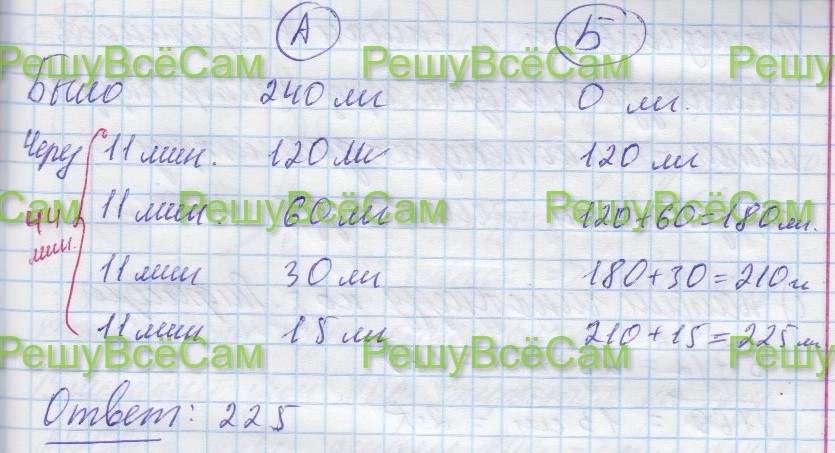 А Б
РешуВсёСам РешуВсёСам РешуВ
Было 240 мг 0 мг.
Через 11 мин. 120 мг 120 мг
11 мин. 60 мг 120+60=180 мг.
Сам РешуВсёСам РешуВсёСам
44 мин.
11 мин 30 мг 180+30=210 г
11 мин 15 мг 210+15=225 мг
РешуВсёСам РешуВсёСам РешуВ
Ответ: 225